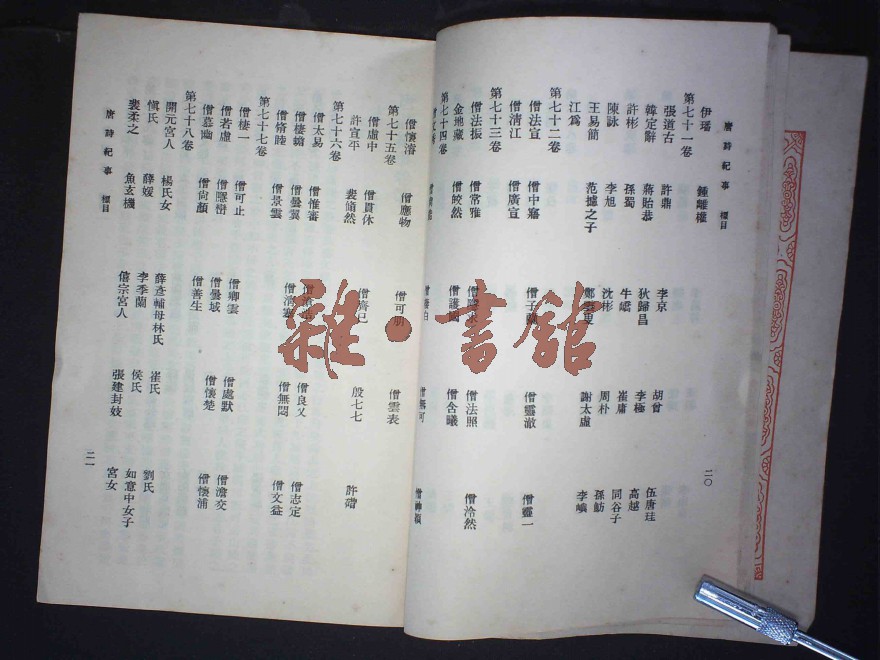 唐詩紀事 標目
伊璠 鍾離權
第七十一卷
張道古 許鼎 李京 胡曾 伍唐珪
韓定辭 蔣貽恭 狄歸昌 李極 高越
許彬 孫蜀 牛嶠 崔庸 同谷子
陳詠 李旭 沈彬 周朴 孫魴
王易簡 范攄之子 鄭雲叟 謝太虛 李嶼
江爲
第七十二卷
僧法宣 僧中寤 僧靈澈 僧靈一
僧清江 僧廣宣
第七十三卷
僧法振 僧常雅 僧法照 僧泠然
金地藏 僧皎然 僧護國 僧含曦
第七十四卷
二〇
僧懷濬 僧應物 僧可朋 僧雲表
第七十五卷
僧虛中 僧貫休 僧齊己 殷七七 許碏
許宣平 裴翛然
第七十六卷
僧太易 僧惟審 僧良乂 僧志定
僧棲蟾 僧曇翼 僧清塞 僧無悶 僧文益
僧脩睦 僧景雲
第七十七卷
僧棲一 僧可止 僧卿雲 僧處默 僧澹交
僧若虛 僧曇域 僧懷楚 僧懷浦
僧慕幽 僧尚顏 僧善生
第七十八卷
開元宮人 楊氏女 薛彥輔母林氏 崔氏 劉氏
愼氏 薛媛 李季蘭 侯氏 如意中女子
裴柔之 魚玄機 僖宗宮人 張建封妓 宮女
唐詩紀事 標目
二一
雜·書館